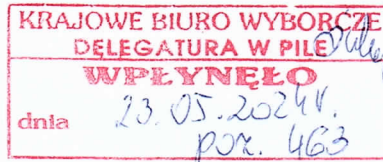 KRAJOWE BIURO WYBORCZE
DELEGATURA W PILE
WPŁYNĘŁO
dnia 23.05.2024r.
poz. 463